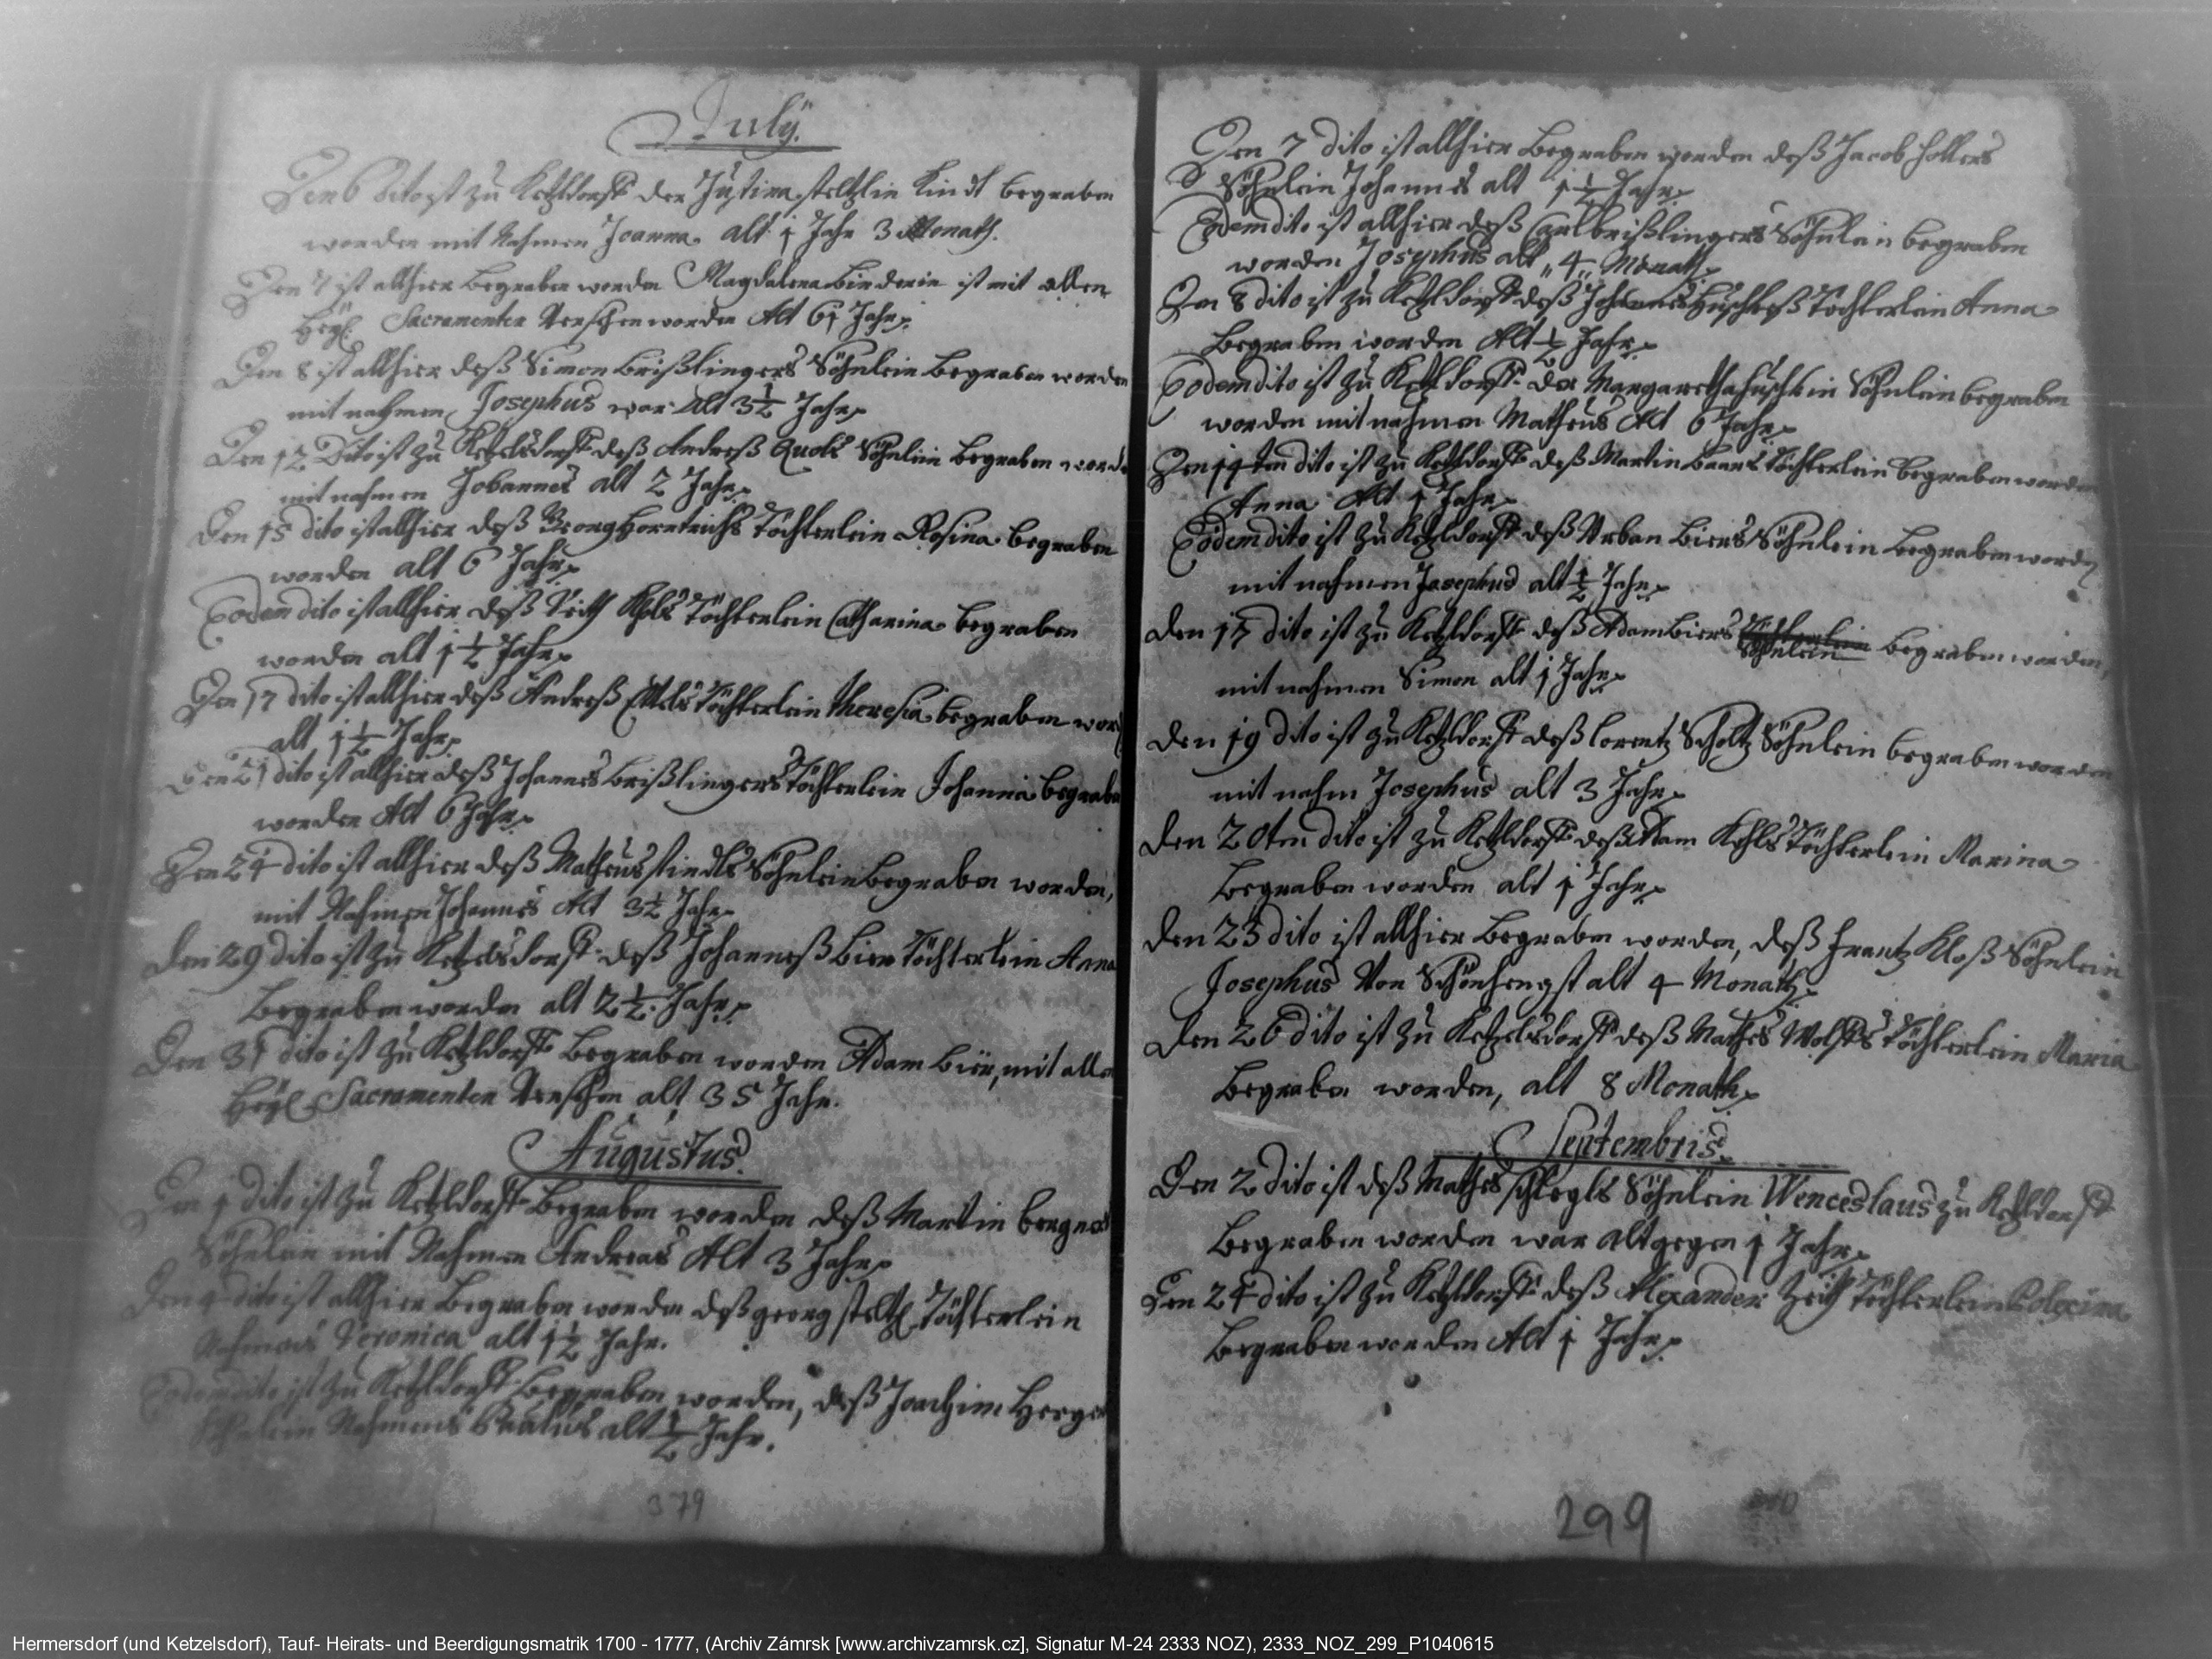 July.
Den 6 Dito ist zu Ketzldorff der Justina steltzlin Kindt begraben
worden mit Nahmen Joanna. alt 1 Jahr 3 Monath.
Den 7 ist allhier begraben worden Magdalena binderin ist mit allen
heyl. Sacramenten versehen worden Alt 61 Jahr.
Den 8 ist allhier deß Simon brißlingers Söhnlein begraben worden
mit nahmen Josephus war alt 3 1/2 Jahr.
Den 12 Dito ist zu Ketzelsdorff deß Andreß Söhnlein begraben word
mit nahmen Johannes alt 2 Jahr.
Den 15 dito ist allhier deß Georg Horntrichs Töchterlein Rosina begraben
worden alt 6 Jahr.
Eodem dito ist allhier deß Veith Töchterlein Catharina begraben
worden alt 1 1/2 Jahr.
Den 17 dito ist allhier deß Andreß Ettels Töchterlein theresia begraben wor
alt 1 1/2 Jahr.
Den 21 dito ist allhier deß Johannes brißlingers Töchterlein Johanna begrabe
worden Alt 6 Jahr.
Den 24 dito ist allhier deß Matheus stindls Söhnlein begraben worden,
mit Nahmen Johannes Alt 3 1/2 Jahr.
Den 29 dito ist zu Ketzelsdorff deß Johanneß bier Töchterlein Anna
begraben worden alt 2 1/2 Jahr.
Den 31 dito ist zu Ketzldorff begraben worden Adam bier, mit alle
heyl. Sacramenten versehen alt 35 Jahr.
Augustus.
Den 1 dito ist zu Ketzldorff begraben worden deß Martin bergners
Söhnlein mit Nahmen Andreas Alt 3 Jahr.
Den 4 dito ist allhier begraben worden deß georg steltzl Töchterlein
Nahmens Veronica alt 1 1/2 Jahr.
Eodem dito ist zu Ketzldorff begraben worden, deß Joachim
Söhnlein Nahmens alt 1/2 Jahr.
379
Den 7 dito ist allhier begraben worden deß Jacob hollers
Söhnlein Johannes alt 1 1/2 Jahr.
Eodem dito ist allhier deß Carl brißlingers Söhnlein begraben
worden Josephus alt „4„ Monath.
Den 8 dito ist zu Ketzldorff deß Johannes Huschkeß Töchterlein Anna
begraben worden Alt 1/2 Jahr.
Eodem dito ist zu Ketzldorff der Margaretha huschkin Söhnlein begraben
worden mit nahmen Matheus Alt 6 Jahr.
Den 14ten dito ist zu Ketzldorff deß Martin Töchterlein begraben worden
Anna Alt 1 Jahr.
Eodem dito ist zu Ketzldorff deß Urban biers Söhnlein begraben worden
mit nahmen Josephus alt 1/2 Jahr.
Den 17 dito ist zu Ketzldorff deß Adam biers Töchterlein Söhnlein begraben worden,
mit nahmen Simon alt 1 Jahr.
Den 19 dito ist zu Ketzldorff deß lorentz Scholtz Söhnlein begraben worden
mit nahm Josephus alt 3 Jahr.
Den 20ten dito ist zu Ketzldorff deß Adam Kohls Töchterlein Marina
begraben worden alt 1 Jahr.
Den 23 dito ist allhier begraben worden, deß frantz Kloß Söhnlein
Josephus Von Schönhengst alt 4 Monath.
Den 26 dito ist zu Ketzelsdorff deß Mathes Wolffs Töchterlein Maria
begraben worden, alt 8 Monath.
Septembris.
Den 2 dito ist deß Mathes schlegls Söhnlein Wenceslaus zu Ketzldorff
begraben worden war alt gegen 1 Jahr.
Den 24 dito ist zu Ketzldorff deß Alexander Zeith Töchterlein Polexina
begraben worden Alt 1 Jahr.
299
Hermersdorf (und Ketzelsdorf), Tauf- Heirats- und Beerdigungsmatrik 1700 - 1777, (Archiv Zámrsk [www.archivzamrsk.cz], Signatur M-24 2333 NOZ), 2333_NOZ_299_P1040615